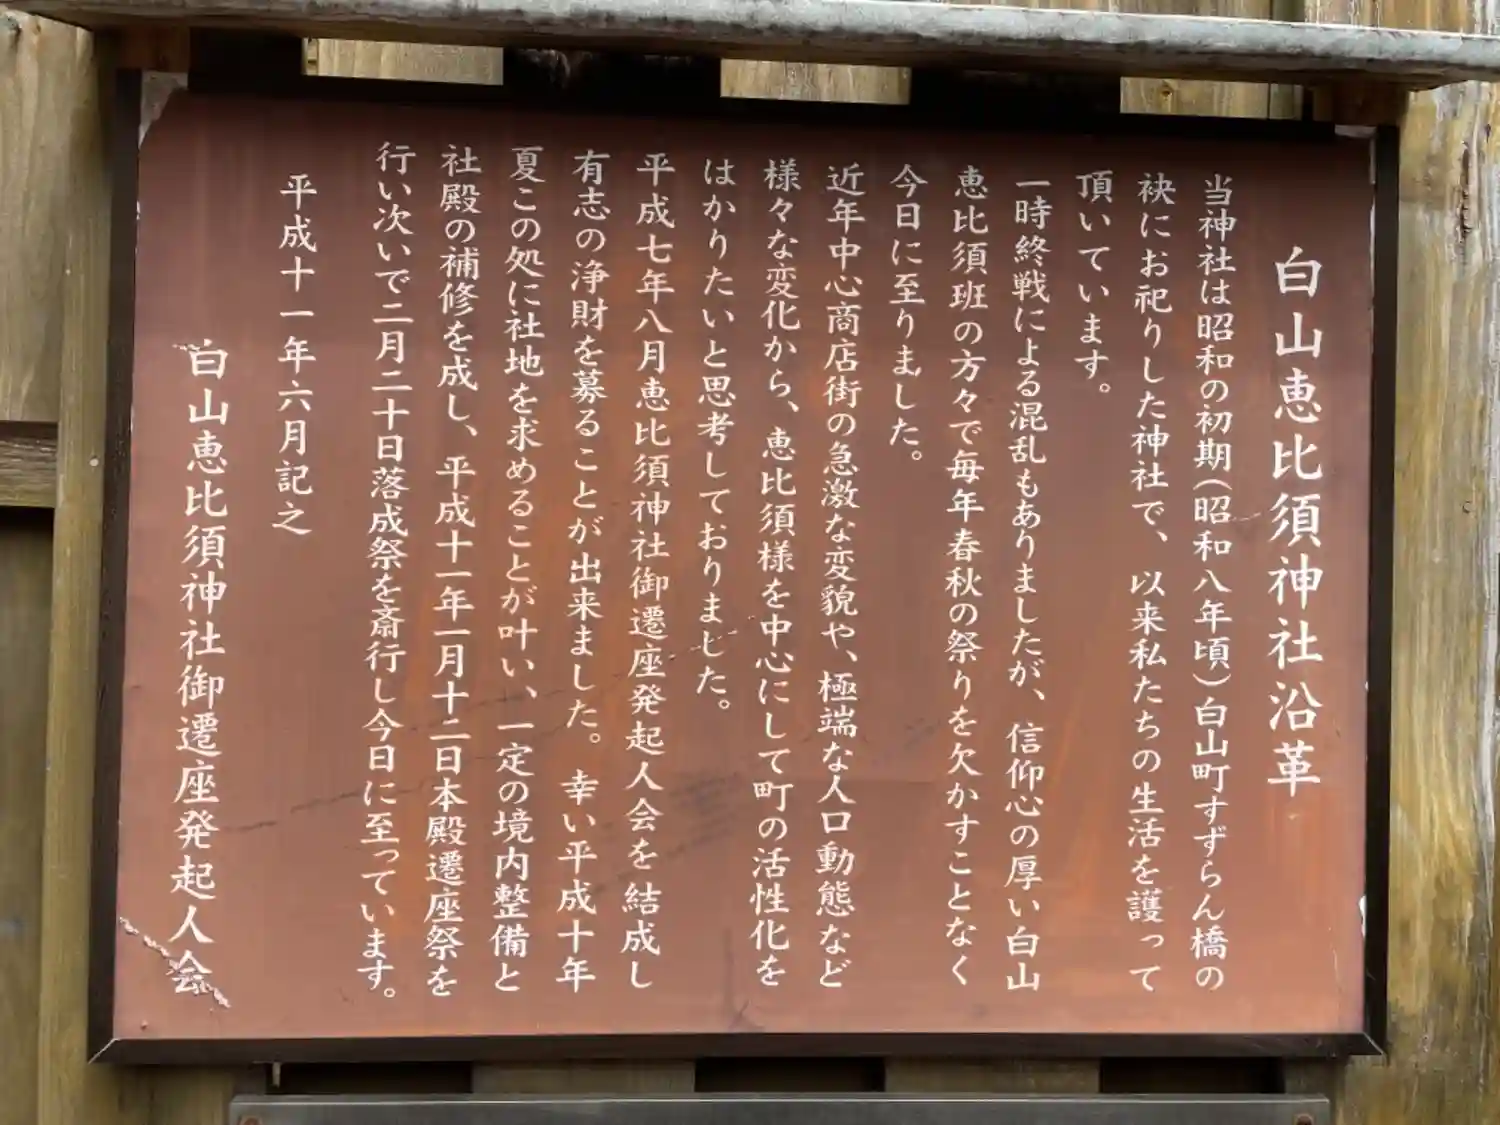 白山恵比須神社沿革
当神社は昭和の初期(昭和八年頃)白山町すずらん橋の
袂にお祀りした神社で、以来私たちの生活を護って
頂いています。
一時終戦による混乱もありましたが、信仰心の厚い白山
恵比須班の方々で毎年春秋の祭りを欠かすことなく
今日に至りました。
近年中心商店街の急激な変貌や、極端な人口動態など
様々な変化から、恵比須様を中心にして町の活性化を
はかりたいと思考しておりました。
平成七年八月恵比須神社御遷座発起人会を結成し
有志の浄財を募ることが出来ました。幸い平成十年
夏この処に社地を求めることが叶い、一定の境内整備と
社殿の補修を成し、平成十一年一月十二日本殿遷座祭を
行い次いで二月二十日落成祭を斎行し今日に至っています。
平成十一年六月記之
白山恵比須神社御遷座発起人会